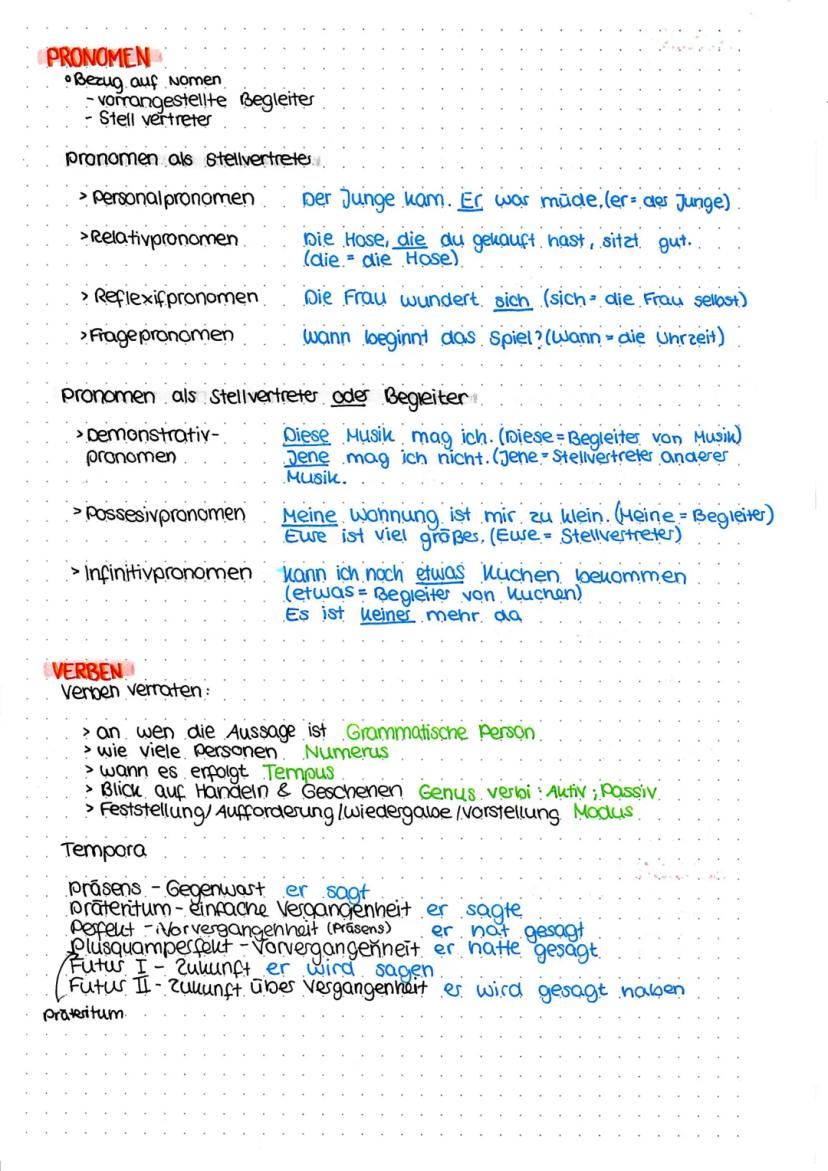 PRONOMEN
°Bezug auf Nomen
- vorrangestellte Begleiter
- Stell vertreter
Pronomen als Stellvertreter
> Personalpronomen Der Junge kam. Er war müde. (er = der Junge)
> Relativpronomen Die Hose, die du gekauft hast, sitzt gut.
(die = die Hose)
> Reflexifpronomen Die Frau wundert sich (sich = die Frau selbst)
> Fragepronomen Wann beginnt das Spiel? (Wann = die Uhrzeit)
Pronomen als Stellvertreter oder Begleiter
> Demonstrativ- Diese Musik mag ich. (Diese = Begleiter von Musik)
pronomen Jene mag ich nicht. (Jene = Stellvertreter anderer
Musik.
> Possesivpronomen Meine Wohnung ist mir zu klein. (Meine = Begleiter)
Eure ist viel größer. (Eure = Stellvertreter)
> Infinitivpronomen Kann ich noch etwas Kuchen bekommen
(etwas = Begleiter von Kuchen)
Es ist keiner mehr da
VERBEN
Verben verraten:
> an wen die Aussage ist Grammatische Person
> wie viele Personen Numerus
> wann es erfolgt Tempus
> Blick auf Handeln & Geschenen Genus verbi : Aktiv ; Passiv
> Feststellung/Aufforderung/Wiedergabe/Vorstellung Modus
Tempora
Präsens - Gegenwart er sagt
Präteritum - einfache Vergangenheit er sagte
Perfekt - Vorvergangenheit (Präsens) er hat gesagt
Plusquamperfekt - Vorvergangenheit er hatte gesagt
Futur I - Zukunft er wird sagen
Futur II - Zukunft über Vergangenheit er wird gesagt haben
Präteritum